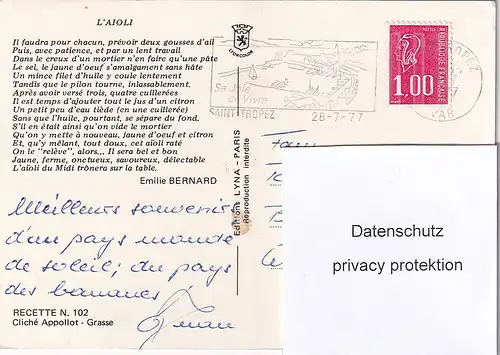 L'AIOLI
Il faudra pour chacun, prévoir deux gousses d'ail
Puis, avec patience, et par un lent travail
Dans le creux d'un mortier n'en faire qu'une pâte
Le sel, le jaune d'oeuf s'amalgament sans hâte
Un mince filet d'huile y coule lentement
Tandis que le pilon tourne, inlassablement.
Après avoir versé trois, quatre cuillerées
Il est temps d'ajouter tout le jus d'un citron
Un petit peu d'eau tiède (en une cuillerée)
Sans que l'huile, pourtant, se sépare du fond.
S'il en était ainsi on vide le mortier
Qu'on y mette à nouveau, jaune d'oeuf et citron
Et, qu'y mêlant, tout doux, cet aïoli raté
On le "relève", alors... Il sera bel et bon
Jaune, ferme, onctueux, savoureux, délectable
L'aïoli du Midi trônera sur la table.
Emilie BERNARD
Meilleurs souvenirs
d'un pays monde
de soleil; du pays
des bananes!
RECETTE N. 102
Cliché Appollot - Grasse
Editions LYNA - PARIS
Reproduction interdite
LYONCOLOR
Sa Joie
de Vivre
SAINT-TROPEZ
28-7-77
REPUBLIQUE FRANÇAISE
1,00
TROPEZ
VAR
Fam
Datenschutz
privacy protektion